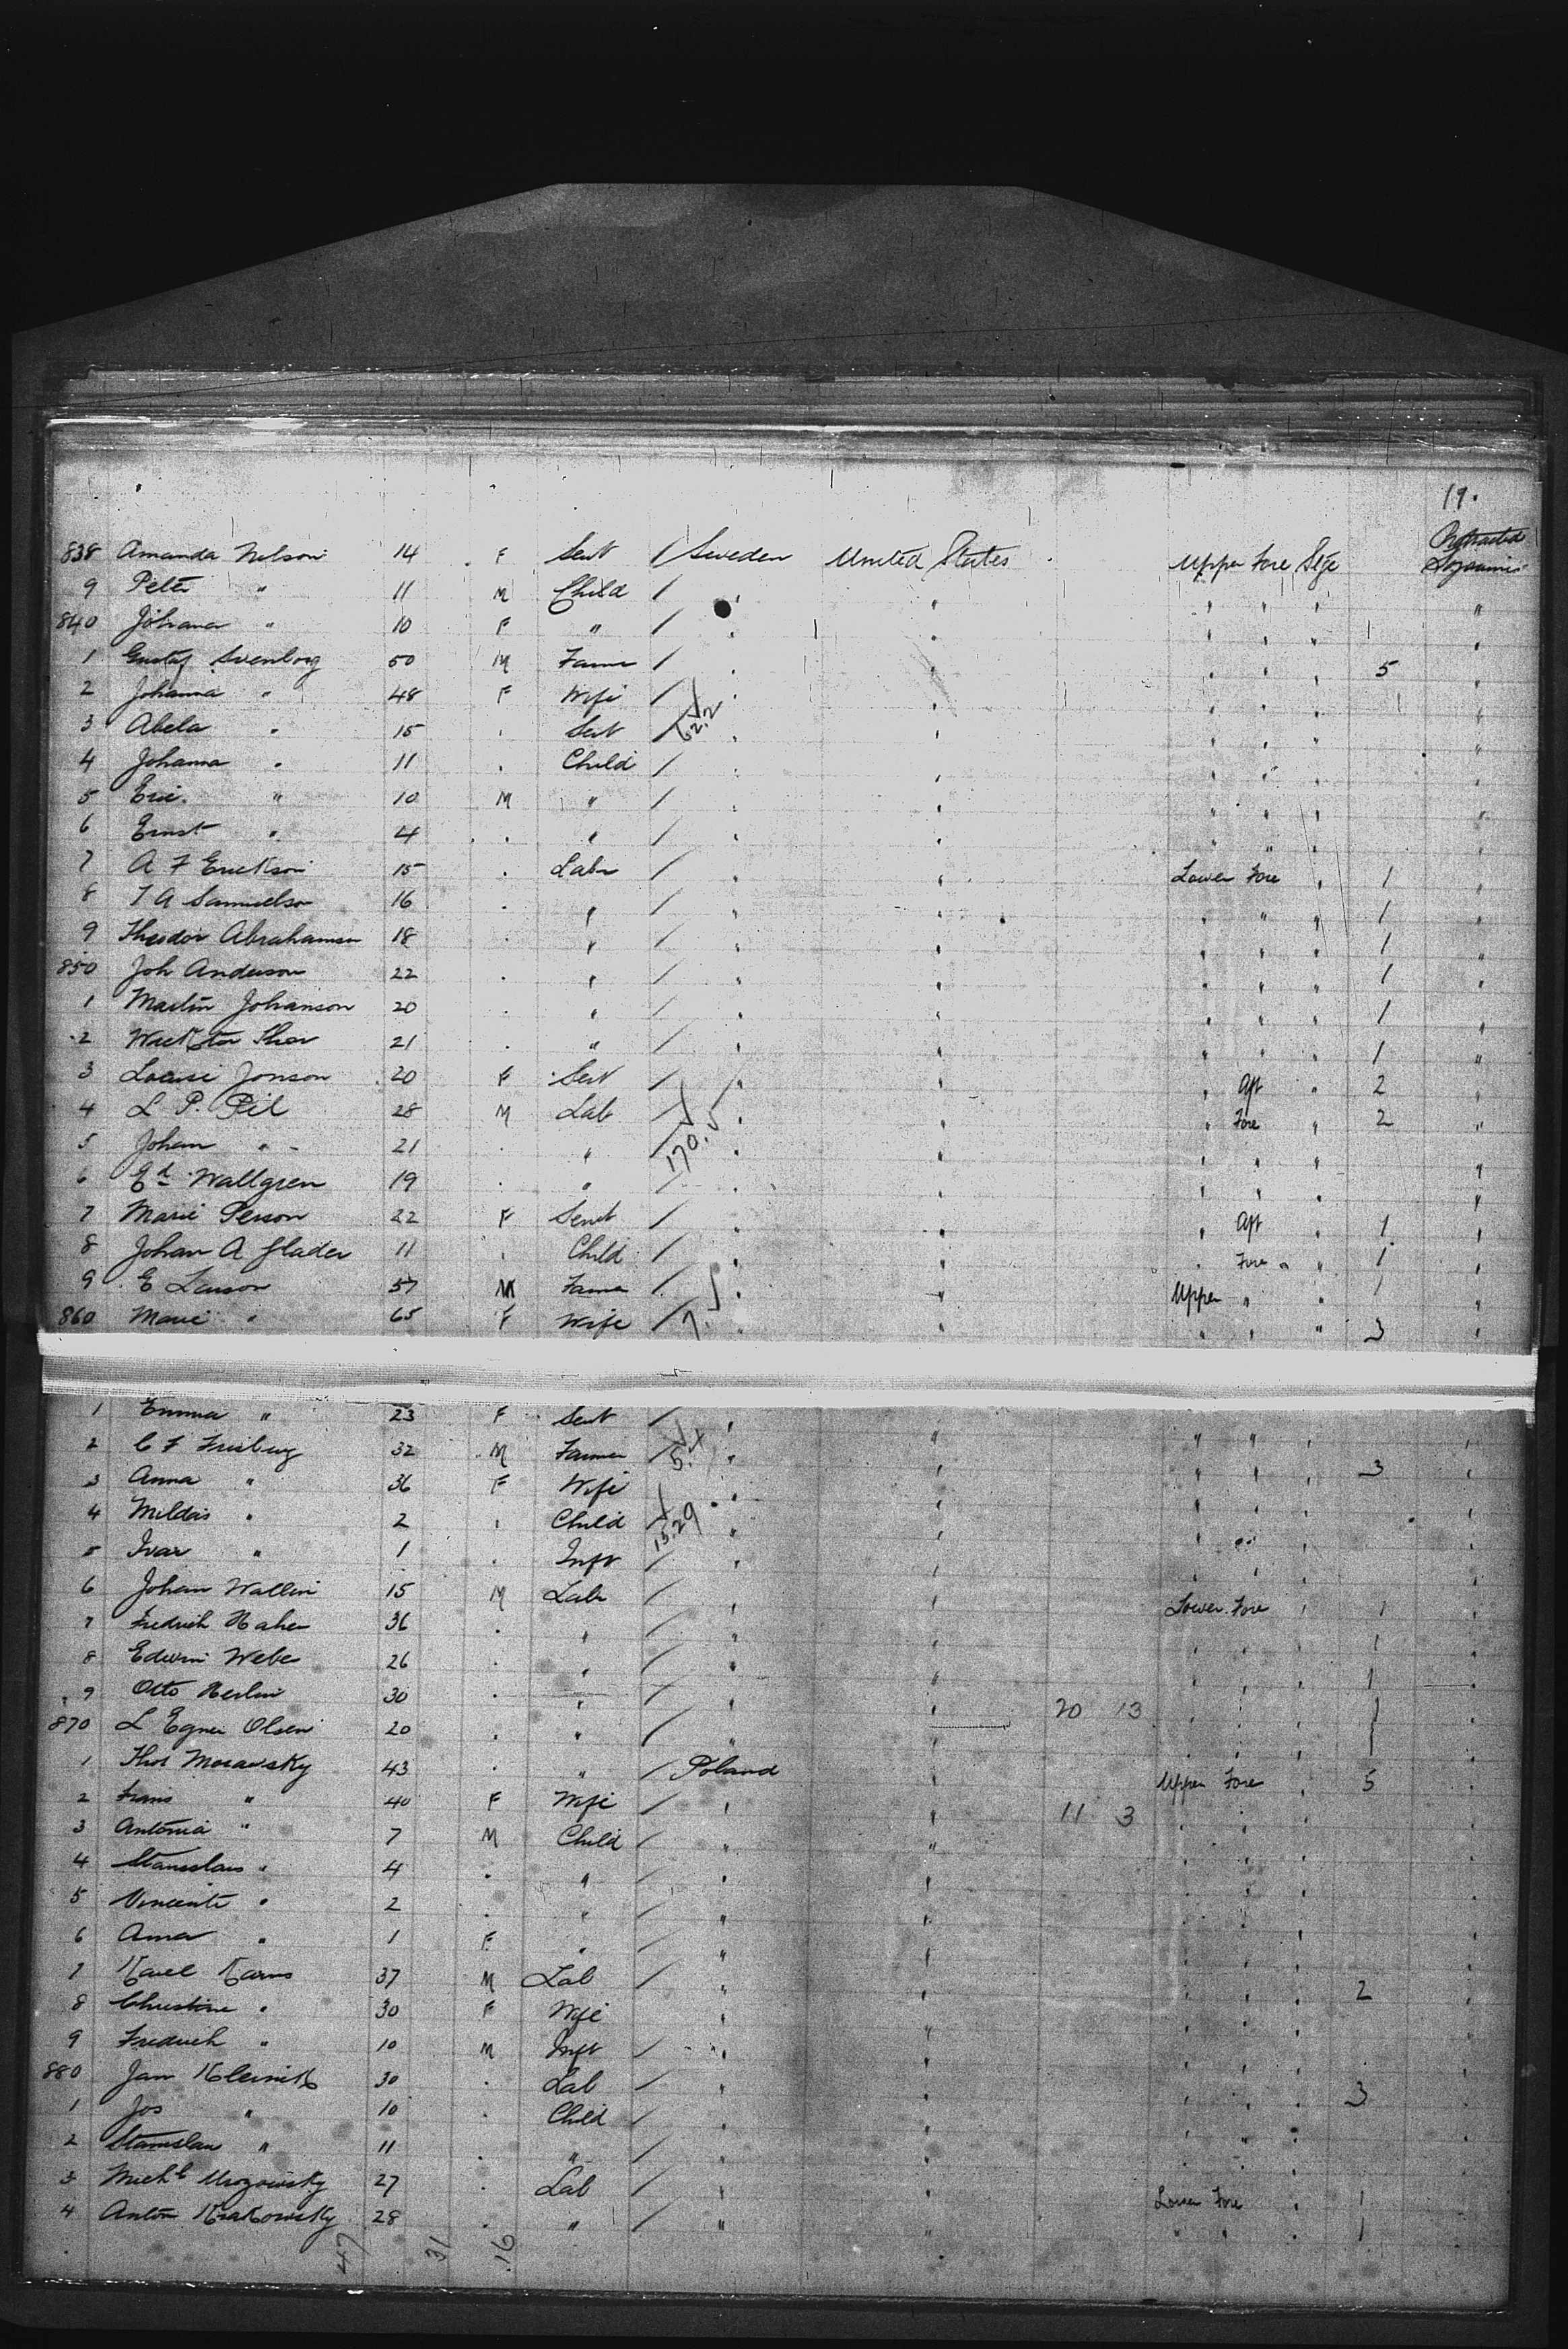 19.
838 Amanda Nelson 14 F Sert / Sweden United States Upper Fore Stge Protracted Sojourning
9 Peter " 11 M Child / " " " " " "
840 Johana " 10 F " / " " " " " 1 "
1 Gustaf Svenborg 50 M Farmr / " " " " " 5 "
2 Johanna " 48 F Wife / " " " " " "
3 Abela " 15 " Sert / 62.2 " " " " " "
4 Johanna " 11 " Child / " " " " "
5 Eric " 10 M " / " " " " " "
6 Ernst " 4 " " / " " " " " "
7 A F Erickson 15 " Labr / " " Lower Fore " 1 "
8 J A Samuelson 16 " " / " " " " " 1 "
9 Theodor Abrahamson 18 " " / " " " " " 1 "
850 Joh Anderson 22 " " / " " " " " 1 "
1 Martin Johanson 20 " " / " " " " " 1 "
2 21 " " / " " " " " 1 "
3 Louise Jonson 20 F Sert / " " " Aft " 2 "
4 L P. Pil 28 M Lab / " " " Fore " 2 "
5 Johan " 21 " " / 170. " " " " " "
6 Ed Wallgren 19 " " / " " " " " "
7 Marie Person 22 F Servt / " " " Aft " 1 "
8 Johan A Glader 11 " Child / " " " Fore " 1 "
9 E Larson 57 M Farmer / " " Upper " " 1 "
860 Marie " 65 F Wife / 7. " " " " " 3 "
1 Emma " 23 F Sert / " " " " " "
2 C F Frisberg 32 M Farmer / 5.4 " " " " " 3 "
3 Anna " 36 F Wife " " " " "
4 Mildas " 2 " Child / 15.29 " " " " "
5 Ivar " 1 " Inft / " " " " " "
6 Johan Wallin 15 M Labr / " " Lower Fore " 1 "
7 Fredrich Haher 36 " " / " " " " " 1 "
8 Edwin Weber 26 " " / " " " " " 1
9 Otto Herlin 30 " " / " " 20 13 " " " 1 "
870 L Egner Olsen 20 " " / " " " " " 1 "
1 Thos Morawsky 43 " " / Poland " Upper Fore " 5 "
2 Frans " 40 F Wife / " " 11 3 " " "
3 Antonia " 7 M Child / " " " " " "
4 Stanislaus " 4 " " / " " " " " "
5 Vincente " 2 " " / " " " " " "
6 Anna " 1 F " / " " " " " "
7 Karel Karns 37 M Lab / " " " " " 2 "
8 Christine " 30 F Wife " " " " " "
9 Fredrich " 10 M Inft / " " " " " "
880 Jan Klernik 30 " Lab / " " " " " 3 "
1 Jos " 10 " Child / " " " " "
2 Stanislau " 11 " " / " " " " " "
3 Michl Mrozowsky 27 " Lab / " " Lower Fore " 1 "
4 Anton Krakowsky 28 " " / " " " " " 1 "
47 31 16